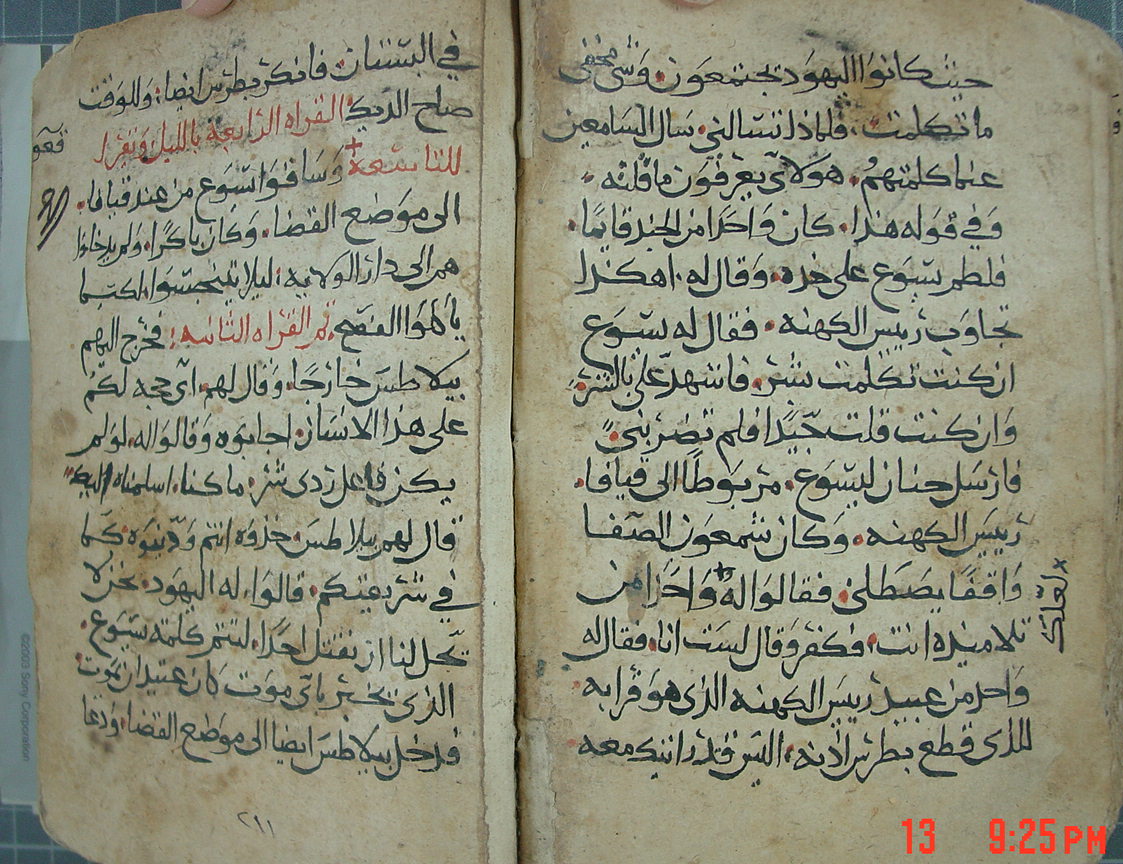 حيث كانوا اليهود يجتمعون. وشى مخفى
ما تكلمت. فلماذا تسالنى. سال السامعين
عما كلمتهم. هولاى يعرفون ما قلته.
وفي قوله هذا. كان واحدا من الجند قايما.
فلطم يسوع على خده. وقال له. اهكذا
تجاوب رييس الكهنه. فقال له يسوع
ان كنت تكلمت بشر. فاشهد على بالشر.
وان كنت قلت جيدا فلم تضربنى.
فارسل حنان ليسوع. مربوطا الى قيافا.
رييس الكهنه. وكان شمعون الصفا
واقفا يصطلى. فقالوا له واحدا من
لعلك
تلاميذه انت. فكفر وقال لست انا. فقال له
واحد من عبيد رييس الكهنه الذى هو قرابه
للذى قطع بطرس اذنه. اليس قد رايتك معه
في البستان. فانكر بطرس ايضا. وللوقت
صاح الديك. القراه الرابعه بالليل وتقرا
للتاسعه وساقوا يسوع من عند قيافا.
الى موضع القضا. وكان باكرا. ولم يدخلوا
هم الى دار الولايه. ليلا يتنجسوا. لكيما
ياكلوا الفصح. تم القراه الثانيه. فخرج اليهم
بيلاطس خارجا. وقال لهم. اى حجه لكم
على هذا الانسان. اجابوه وقالوا له. لو لم
يكن فاعل ردى شر. ما كنا. اسلمناه اليك
قال لهم بيلاطس. خذوه انتم ودينوه كما
في شريعتكم. قالوا. له اليهود. نحن لا
يحل لنا ان نقتل احدا. لتتم كلمة يسوع.
الذى يخبر باى موت كان عتيد ان يموت
فدخل بيلاطس ايضا الى موضع القضا. ودعا
٢٩١
©2003 Sony Corporation
13 9:25 PM